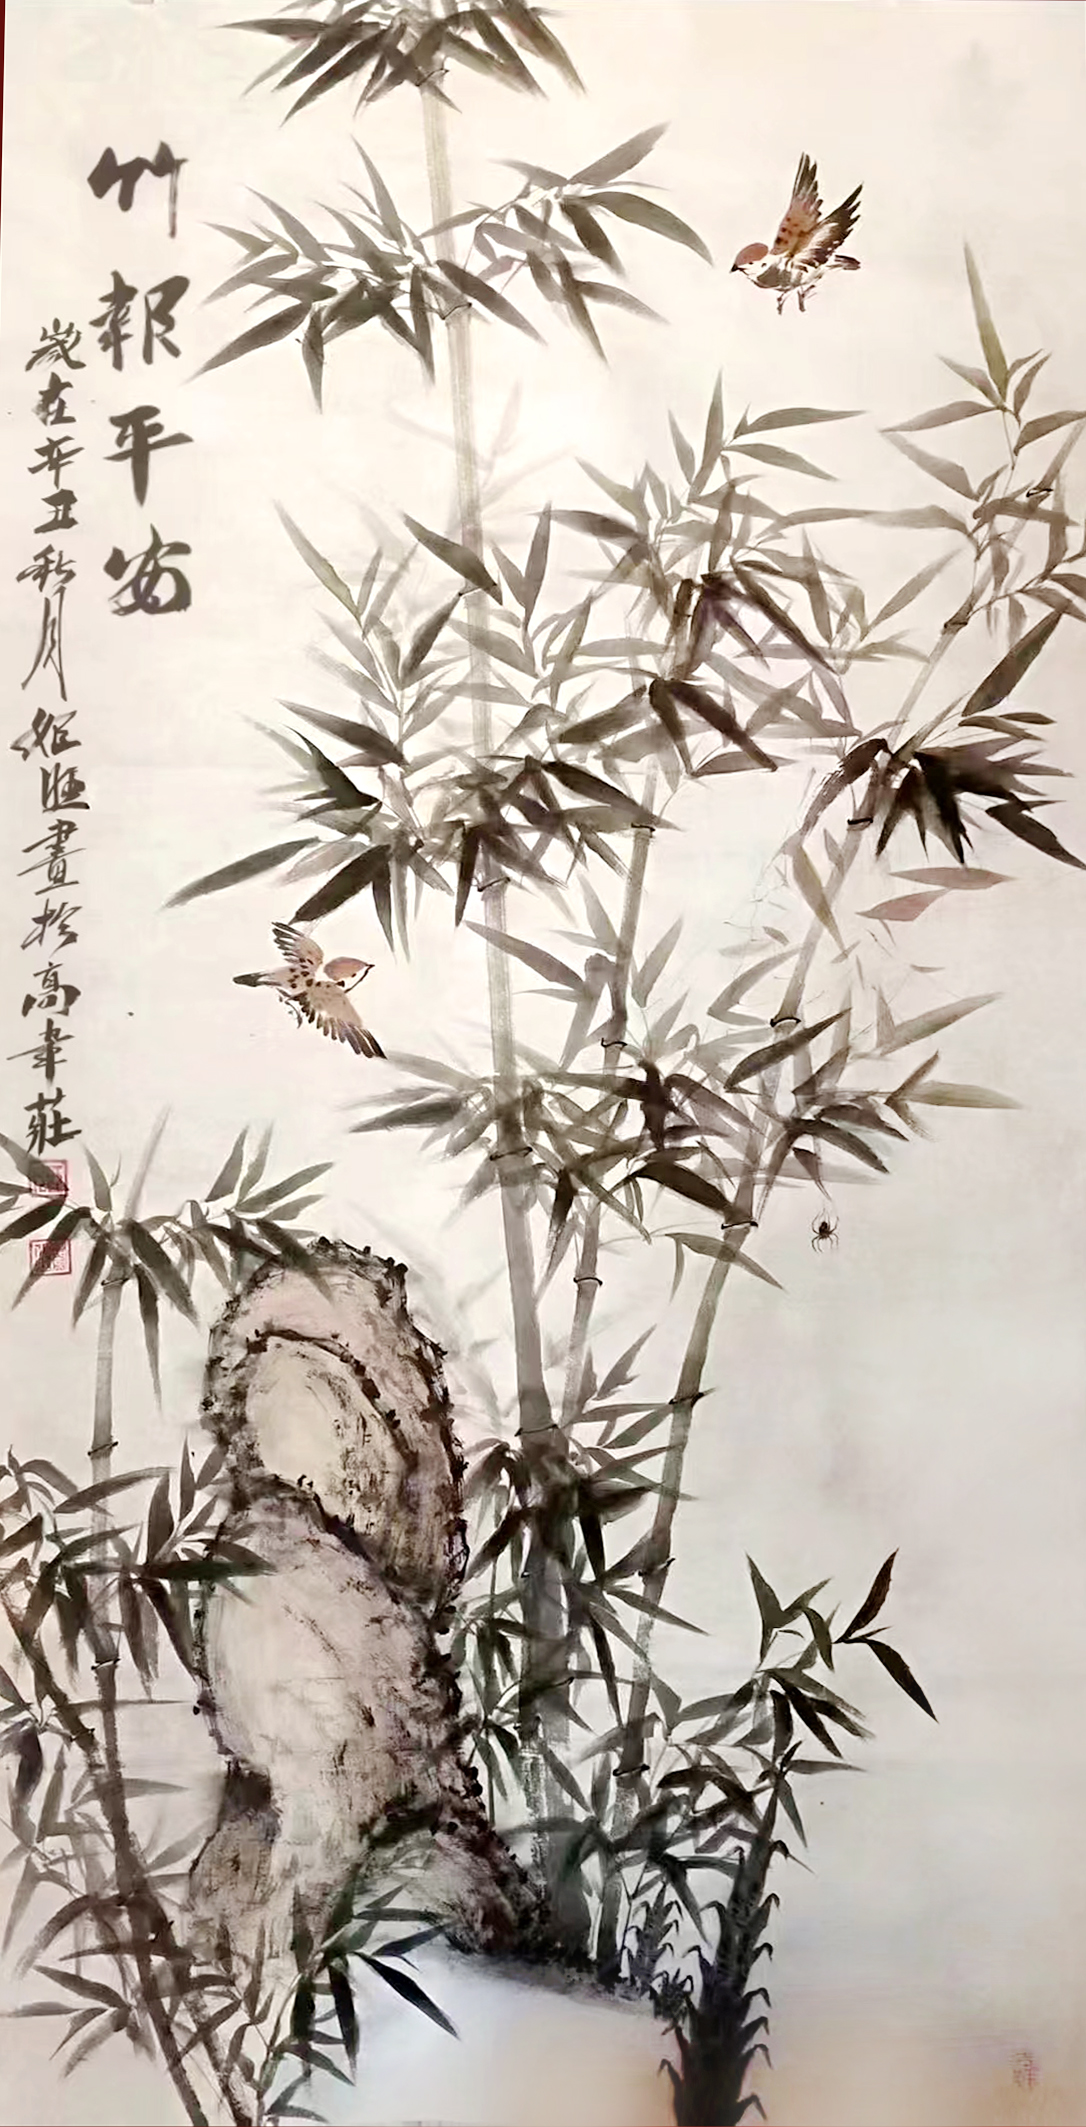 竹報平安
歲在辛丑秋月紹旺畫於高韋莊